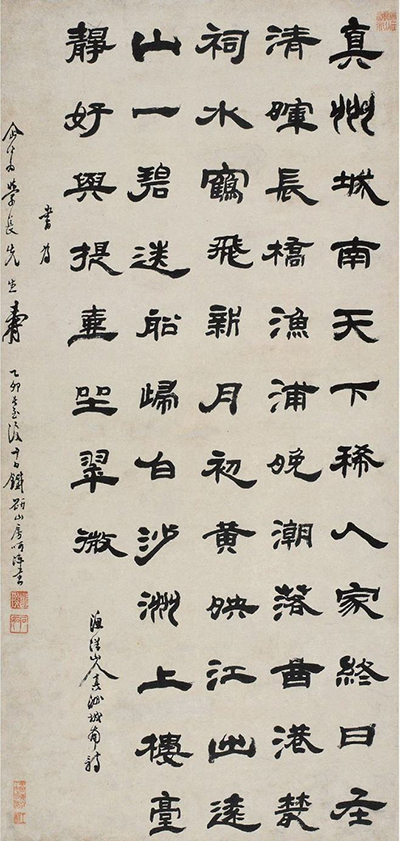 真州城南天下稀人家終日在
清暉長橋漁浦晚潮落曲港叢
祠水鶴飛新月初黃映江出遠
山一碧送船歸白沙洲上樓臺
靜好與提壺坐翠微
漁洋山人真州城南詩
書為
學長先生壽
乙卯長至後十日鐵山房